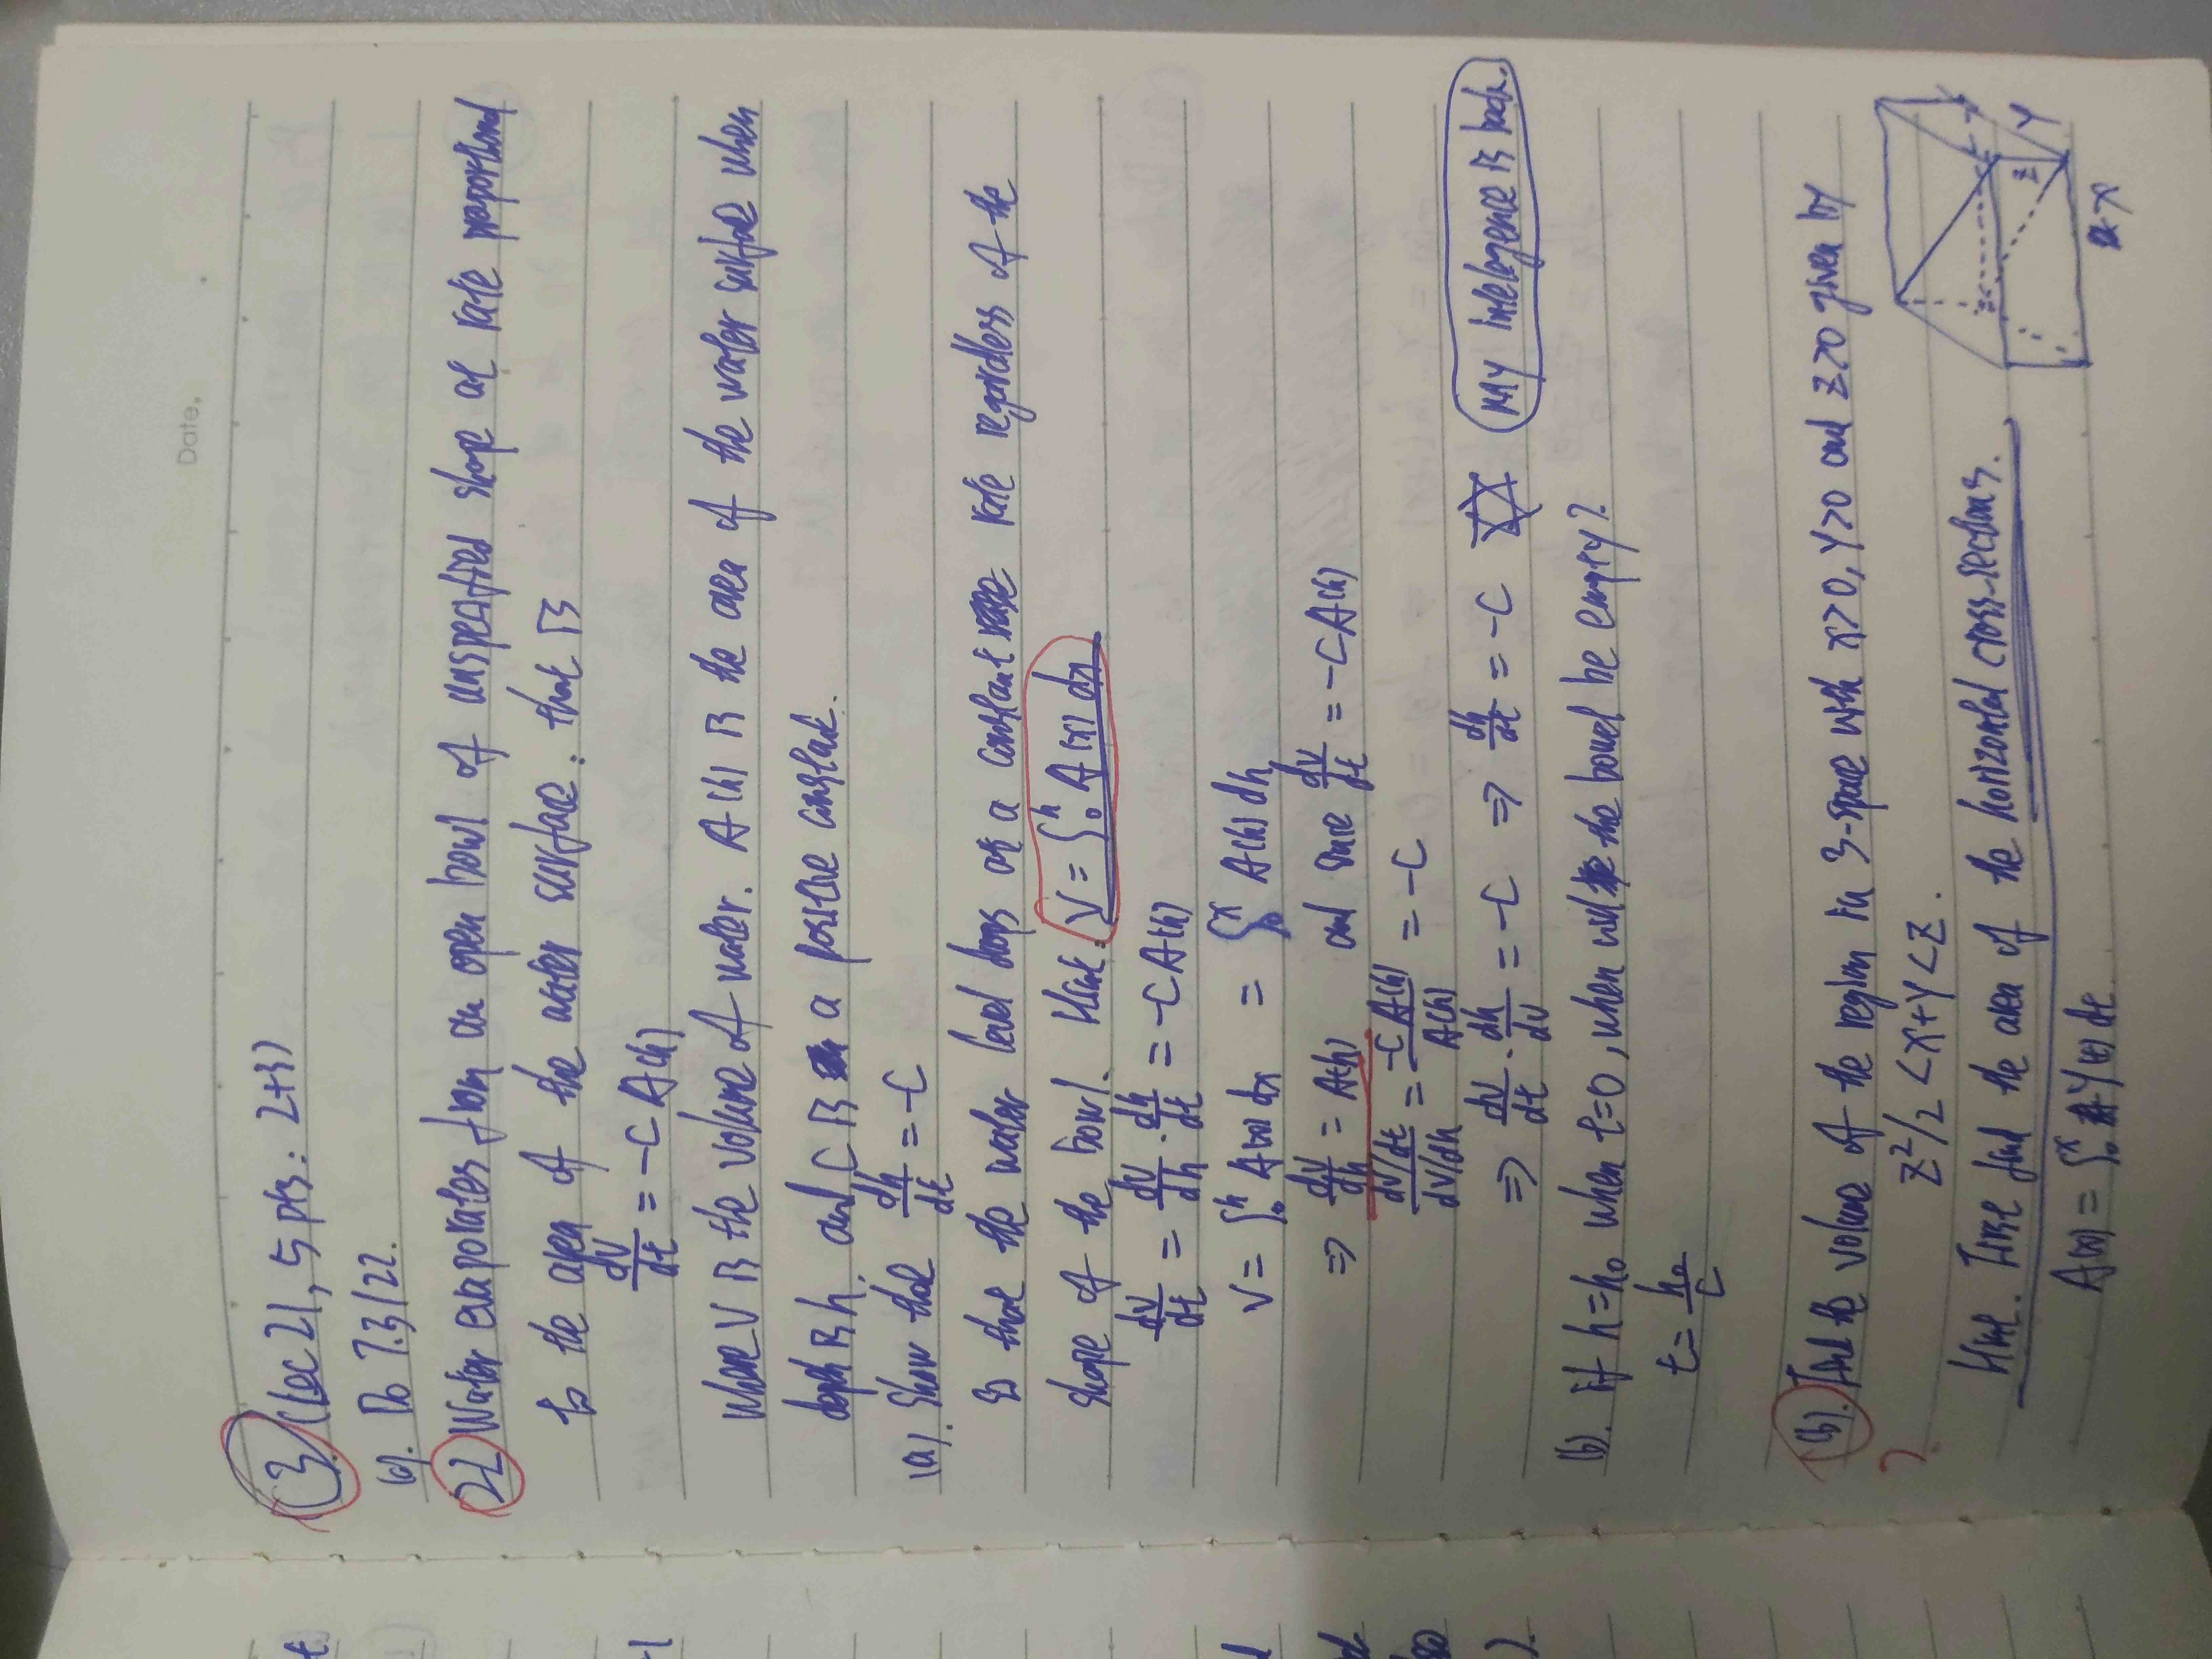 Date.
(3) (Lec 21, 5 pts: 2+3)
a). Do 7.3/22.
22 Water evaporates from an open bowl of unspecified shape at rate proportional
to the area of the water surface: that is
dV/dt = -C A(h)
where V is the volume of water. A(h) is the area of the water surface when
depth is h, and C is a positive constant.
(a). Show that dh/dt = -C
so that the water level drops at a constant rate regardless of the
shape of the bowl. Hint: V = ∫₀ʰ A(x) dx
dV/dt = dV/dh · dh/dt = -C A(h)
V = ∫₀ʰ A(x) dx = ∫₀ˣ A(h) dh
⇒ dV/dh = A(h) and since dV/dt = -C A(h)
(dV/dt)/(dV/dh) = -C A(h)/A(h) = -C
⇒ dV/dt · dh/dV = -C ⇒ dh/dt = -C ✡ MY intelegence is back.
(b). if h=h₀ when t=0, when will the bowel be empty?
t = h₀/C
(b). Find the volume of the region in 3-space with x>0, y>0 and z>0 given by
? z²/2 < x+y < z.
Hint. First find the area of the horizontal cross-sections.
z
y
x